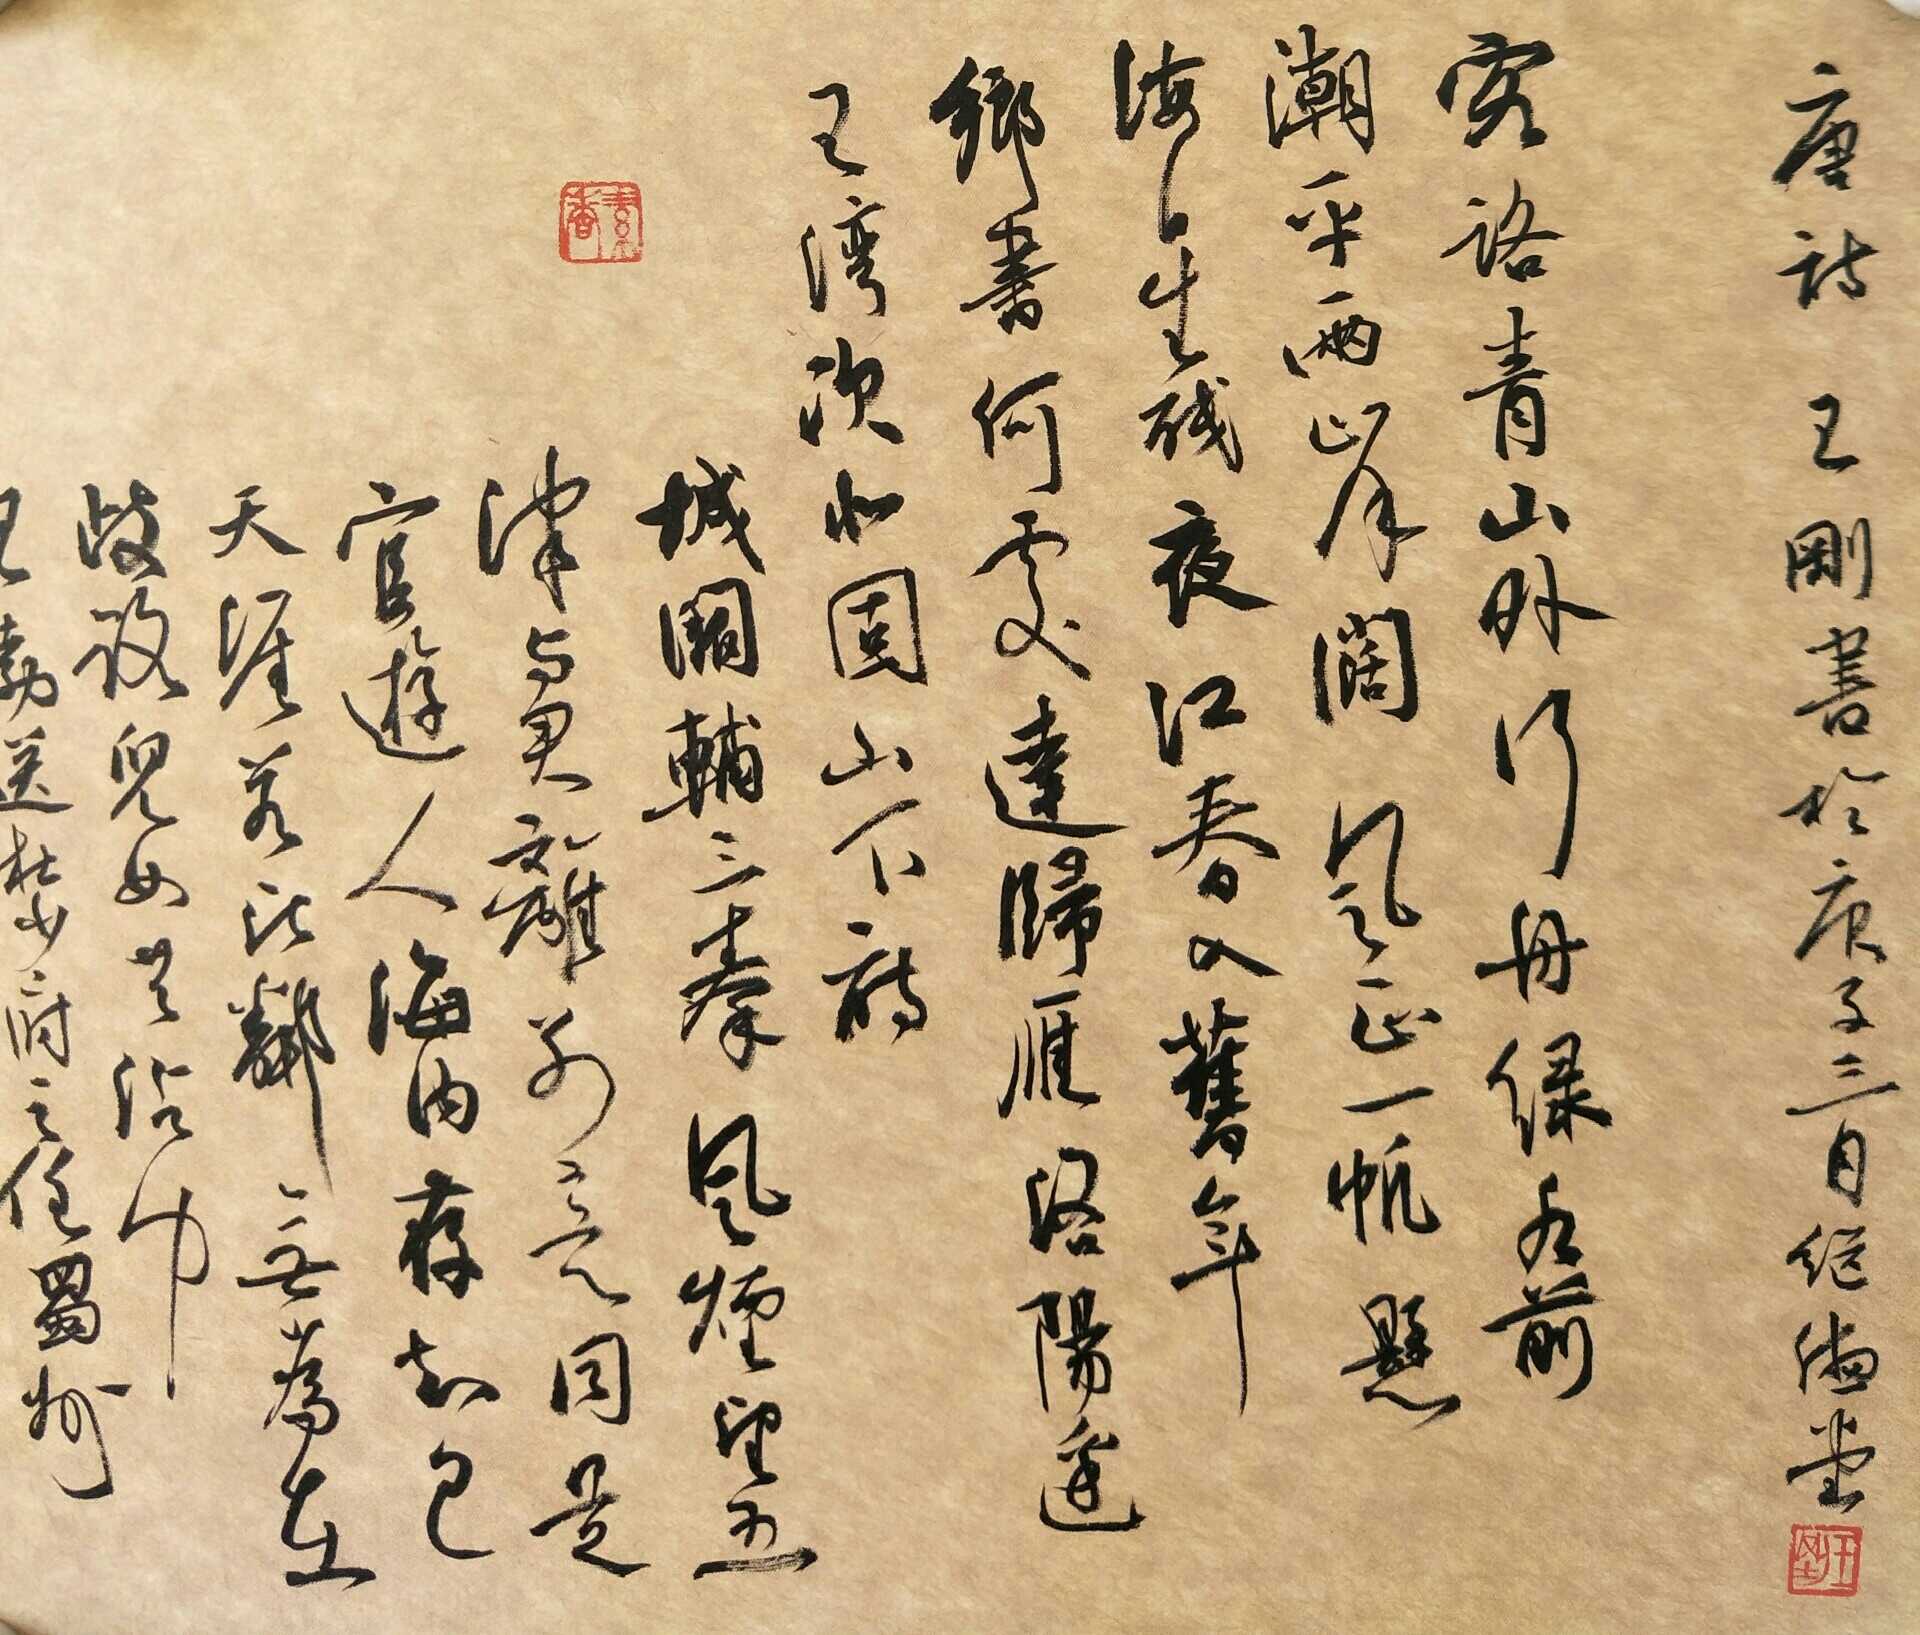 唐詩 王剛書於庚子三月
客路青山外行舟綠水前
潮平兩岸闊風正一帆懸
海日生殘夜江春入舊年
鄉書何處達歸雁洛陽邊
王湾次北固山下詩
素香
城闕輔三秦風煙望五
津與君離別意同是
宦遊人海內存知己
天涯若比鄰無為在
歧路兒女共沾巾
王勃送杜少府之任蜀州